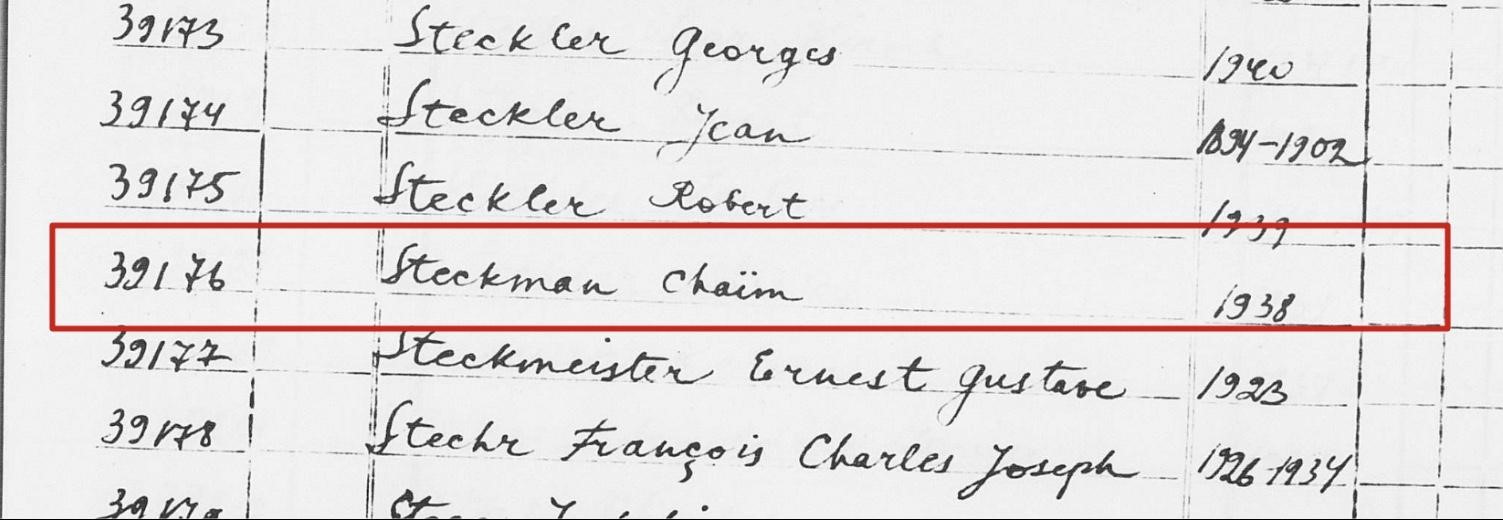 39173 Steckler Georges 1940
39174 Steckler Jean 1894-1902
39175 Steckler Robert 1939
39176 Steckman Chaïm 1938
39177 Steckmeister Ernest Gustave 1923
39178 Stechr François Charles Joseph 1926-1934
39179